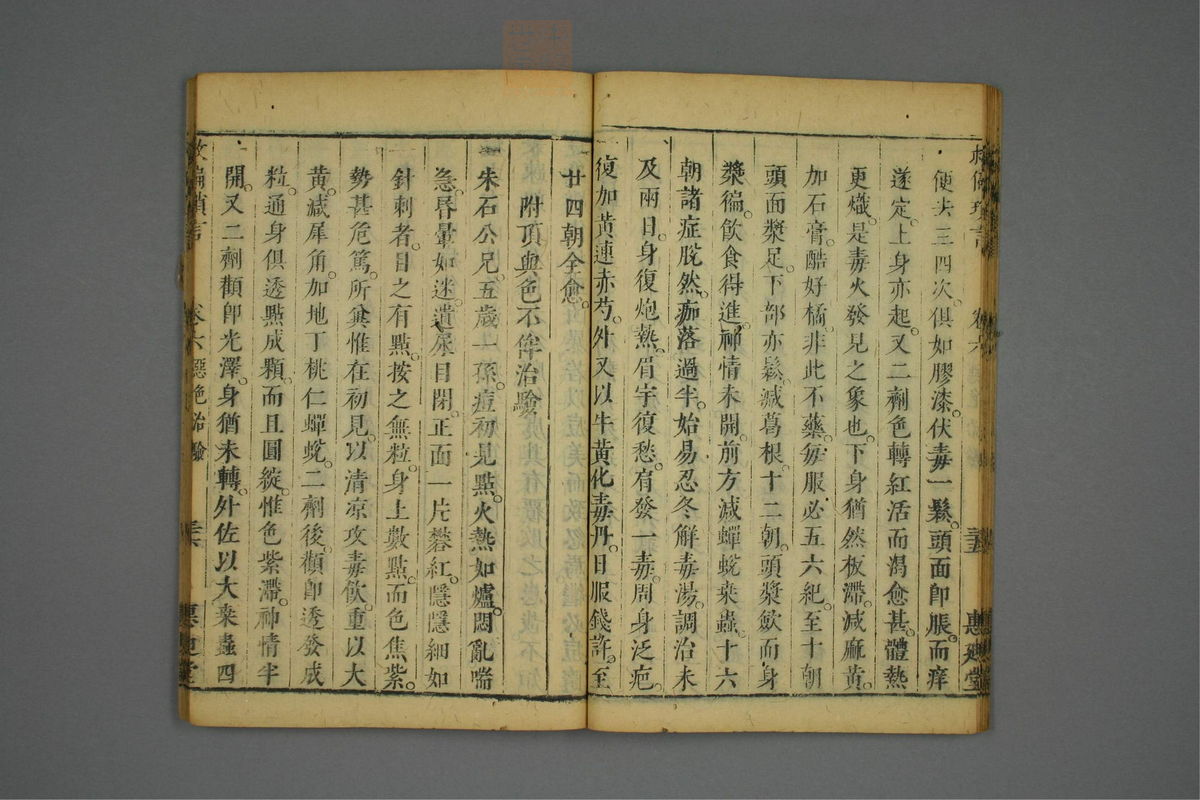 救偏瑣言 卷六 三五 惠迪堂
便夫三四次。俱如膠漆。伏毒一鬆。頭面卽脹。而痒
遂定。上身亦起。又二劑色轉紅活而渴愈甚。體熱
更熾。是毒火發見之象也。下身猶然板滯。减麻黄。
加石膏。酷好橘。非此不藥。每服必五六紀。至十朝
頭面漿足。下部亦鬆。减葛根。十二朝。頭漿歛而身
漿徧。飲食得進。神情未開。前方减蟬蛻桒蟲。十六
朝諸症脫然。痂落過半。始易忍冬解毒湯。調治未
及兩日。身復炮熱。眉宇復愁。有發一毒。周身泛疤。
復加黄連赤芍。外又以牛黄化毒丹。日服錢許。至
廿四朝全愈。
附頂與色不侔治驗
朱石公兄。五歲一孫。痘初見點。火熱如爐。悶亂喘
急。唇暈如迷。遺尿目閉。正面一片礬紅。隱隱細如
針刺者。目之有點。按之無粒。身上數點。而色焦紫。
勢甚危篤。所兾惟在初見。以清凉攻毒飲。重以大
黄。减犀角。加地丁桃仁蟬蛻。二劑後。顴卽透發成
粒。通身俱透點成顆。而且圓綻。惟色紫滯。神情半
開。又二劑顴卽光澤。身猶未轉。外佐以大桒蟲四
救偏瑣言 卷六 險絶治驗 三六 惠迪堂